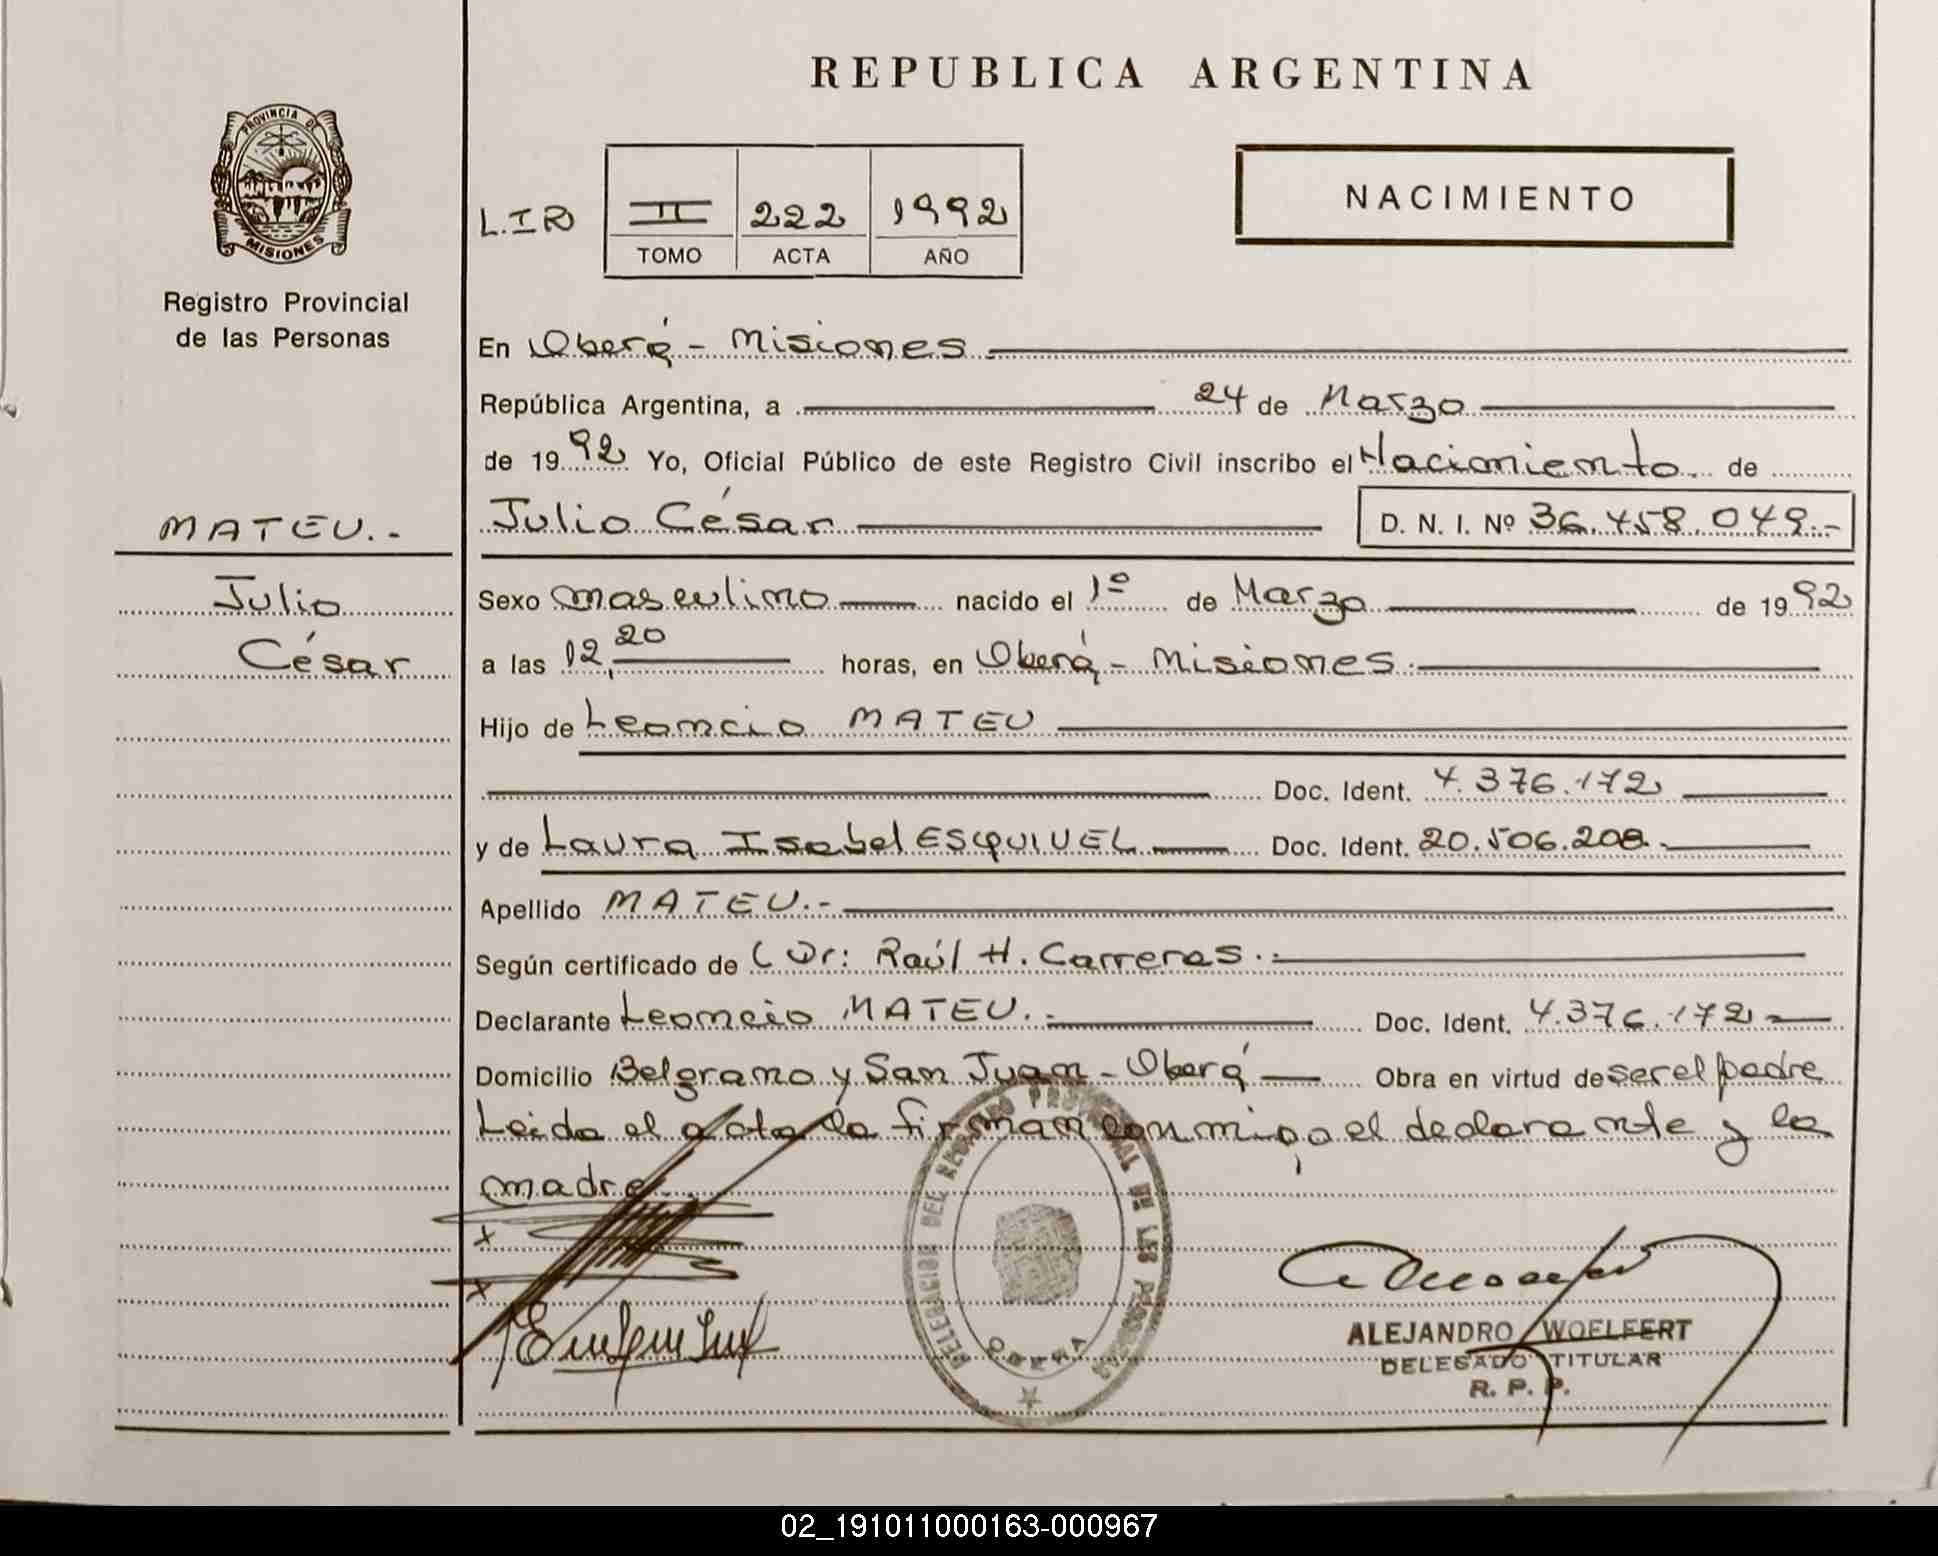 REPUBLICA ARGENTINA
PROVINCIA DE
MISIONES
Registro Provincial
de las Personas
L.I.R
II 222 1992
TOMO ACTA AÑO
NACIMIENTO
En Oberá - Misiones
República Argentina, a 24 de Marzo
de 1992 Yo, Oficial Público de este Registro Civil inscribo el Nacimiento de
MATEU.-
Julio César D. N. I. Nº 36.458.049.-
Julio
César
Sexo masculino nacido el 1º de Marzo de 1992
a las 12,20 horas, en Oberá - Misiones.
Hijo de Leoncio MATEU
Doc. Ident. 4.376.172
y de Laura Isabel ESQUIVEL Doc. Ident. 20.506.208.
Apellido MATEU.-
Según certificado de Dr: Raúl H. Carreras.-
Declarante Leoncio MATEU.- Doc. Ident. 4.376.172
Domicilio Belgrano y San Juan - Oberá Obra en virtud de ser el padre
Leida el acta la firman conmigo el declarante y la
madre.
x
x
DELEGACION DEL REGISTRO PROVINCIAL DE LAS PERSONAS
OBERA
ALEJANDRO WOELFERT
DELEGADO TITULAR
R. P. P.
02_191011000163-000967